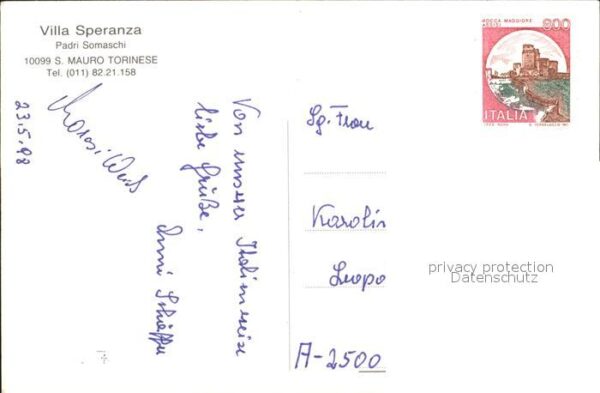 Villa Speranza
Padri Somaschi
10099 S. MAURO TORINESE
Tel. (011) 82.21.158
ROCCA MAGGIORE
ASSISI
800
ITALIA
23.5.98
Von unserer Italienreise
liebe Grüße,
Anni
Sg. Frau
Karolin
Luopo
A-2500
privacy protection
Datenschutz